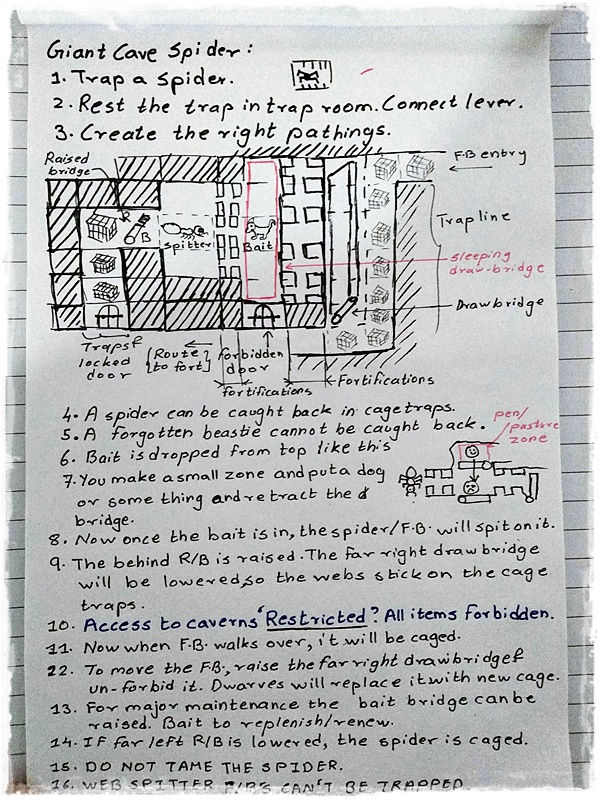 Giant Cave Spider:
1. Trap a spider.
2. Rest the trap in trap room. Connect lever.
3. Create the right pathings.
Raised
bridge
F.B entry
R
B
spitter
Bait
Trap line
sleeping
draw-bridge
Drawbridge
Traps &
locked
door
Route
to fort
forbidden
door
fortifications
Fortifications
4. A spider can be caught back in cage traps.
5. A forgotten beastie cannot be caught back.
pen/
pasture
zone
6. Bait is dropped from top like this
7. You make a small zone and put a dog
or some thing and retract the
bridge.
8. Now once the bait is in, the spider/F.B. will spit on it.
9. The behind R/B is raised. The far right drawbridge
will be lowered, so the webs stick on the cage
traps.
10. Access to caverns 'Restricted'? All items forbidden.
11. Now when F.B. walks over, it will be caged.
22. To move the F.B., raise the far right drawbridge &
un-forbid it. Dwarves will replace it with new cage.
13. For major maintenance the bait bridge can be
raised. Bait to replenish/renew.
14. IF far left R/B is lowered, the spider is caged.
15. DO NOT TAME THE SPIDER.
16. WEB SPITTER F/B'S CAN'T BE TRAPPED.